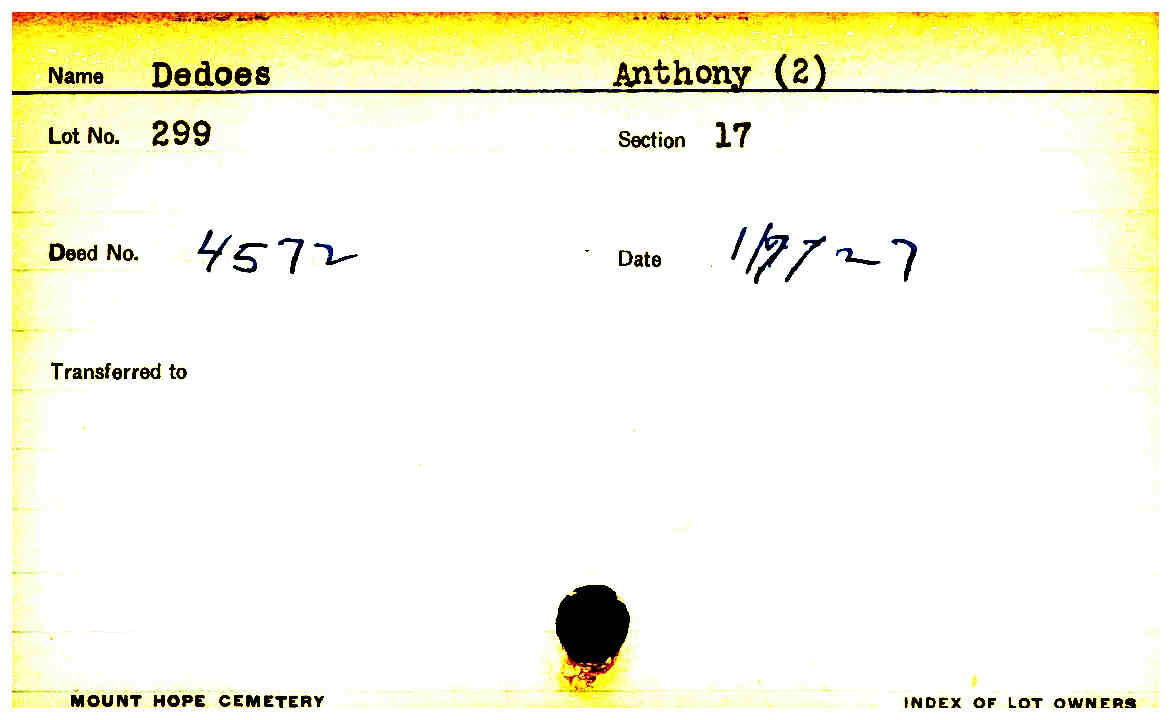 Name Dedoes Anthony (2)
Lot No. 299 Section 17
Deed No. 4572 Date 1/7/27
Transferred to
MOUNT HOPE CEMETERY INDEX OF LOT OWNERS